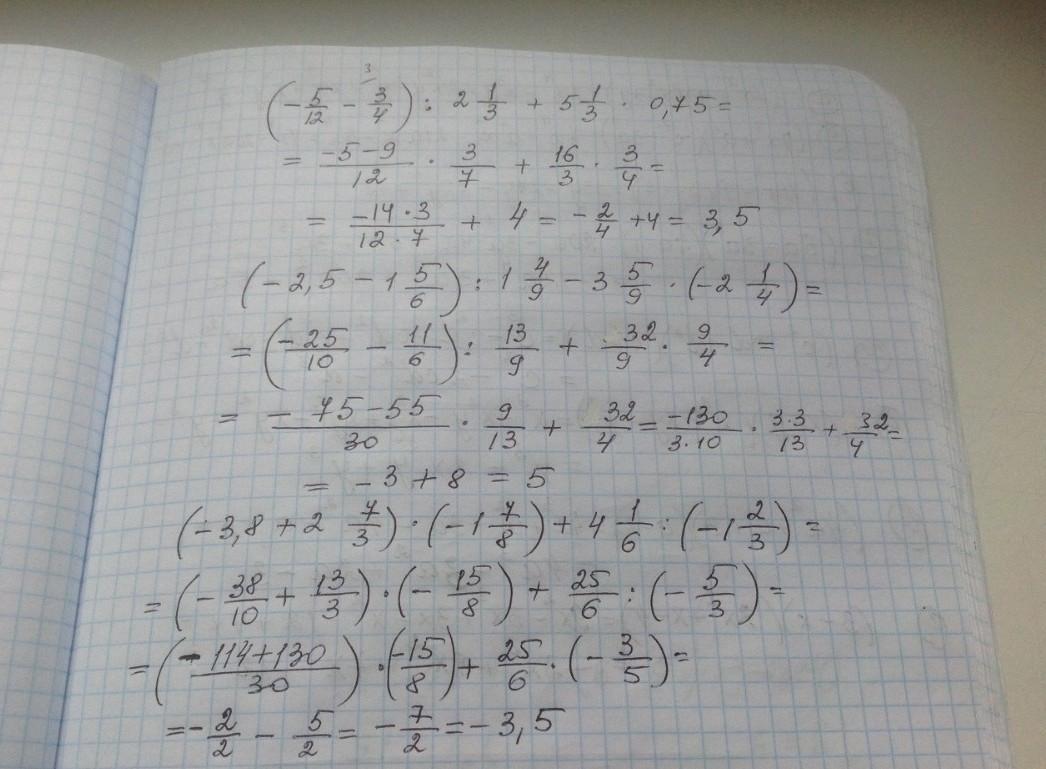 3
(-5/12 - 3/4) : 2 1/3 + 5 1/3 · 0,75 =
= (-5-9)/12 · 3/7 + 16/3 · 3/4 =
= (-14·3)/(12·7) + 4 = -2/4 + 4 = 3,5
(-2,5 - 1 5/6) : 1 4/9 - 3 5/9 · (-2 1/4) =
= (-25/10 - 11/6) : 13/9 + 32/9 · 9/4 =
= (-75-55)/30 · 9/13 + 32/4 = -130/(3·10) · (3·3)/13 + 32/4 =
= -3 + 8 = 5
(-3,8 + 2 7/3) · (-1 7/8) + 4 1/6 : (-1 2/3) =
= (-38/10 + 13/3) · (-15/8) + 25/6 : (-5/3) =
= ((-114+130)/30) · (-15/8) + 25/6 · (-3/5) =
= -2/2 - 5/2 = -7/2 = -3,5